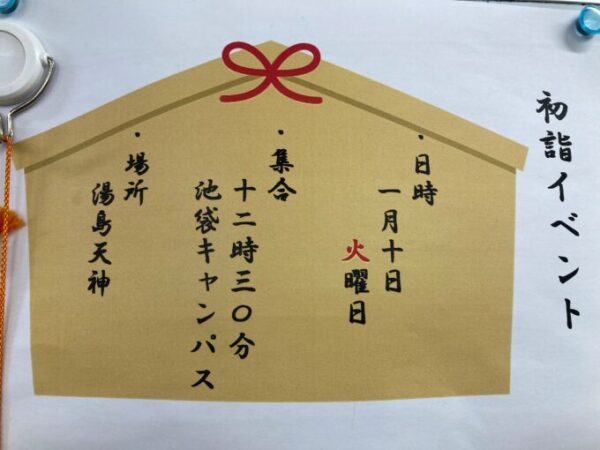 初詣イベント
・日時
一月十日
火曜日
・集合
十二時三〇分
池袋キャンパス
・場所
湯島天神